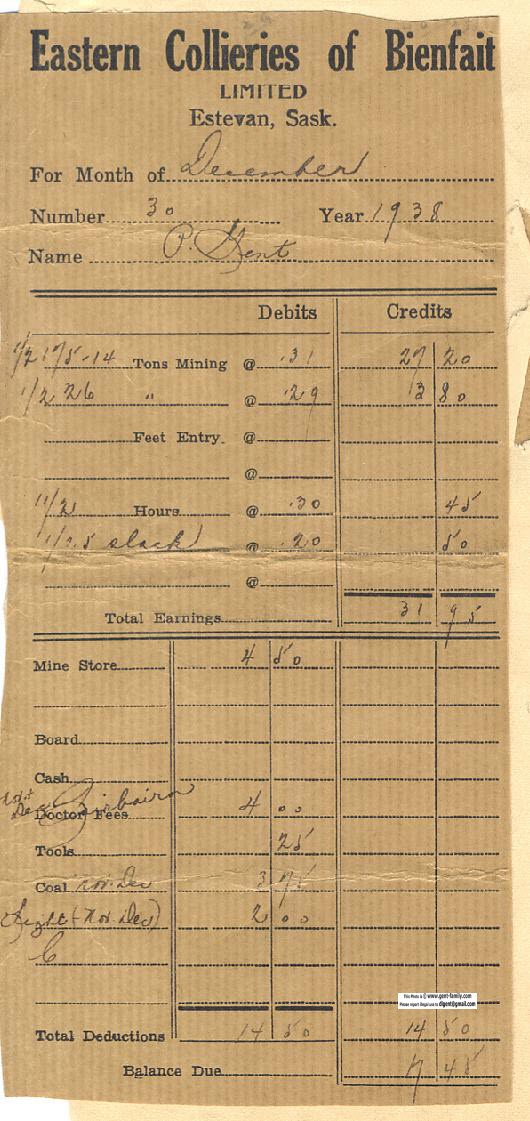 Eastern Collieries of Bienfait
LIMITED
Estevan, Sask.
For Month of December
Number 30 Year 1938
Name P. Gent
Debits Credits
1/2 175-14 Tons Mining @ .31 27 20
1/2 26 " @ .29 13 80
Feet Entry @
@
Hours @ .30 45
slack @ .20 50
@
Total Earnings 31 95
Mine Store 4 50
Board
Cash
Nov + Dec Fairbairn
Doctor Fees 4 00
Tools 25
Coal Nov. Dec 3 75
Light (Nov. Dec) 2 00
This Photo is © www.gent-family.com
Please report illegal use to digent@gmail.com
Total Deductions 14 50 14 50
Balance Due 17 45